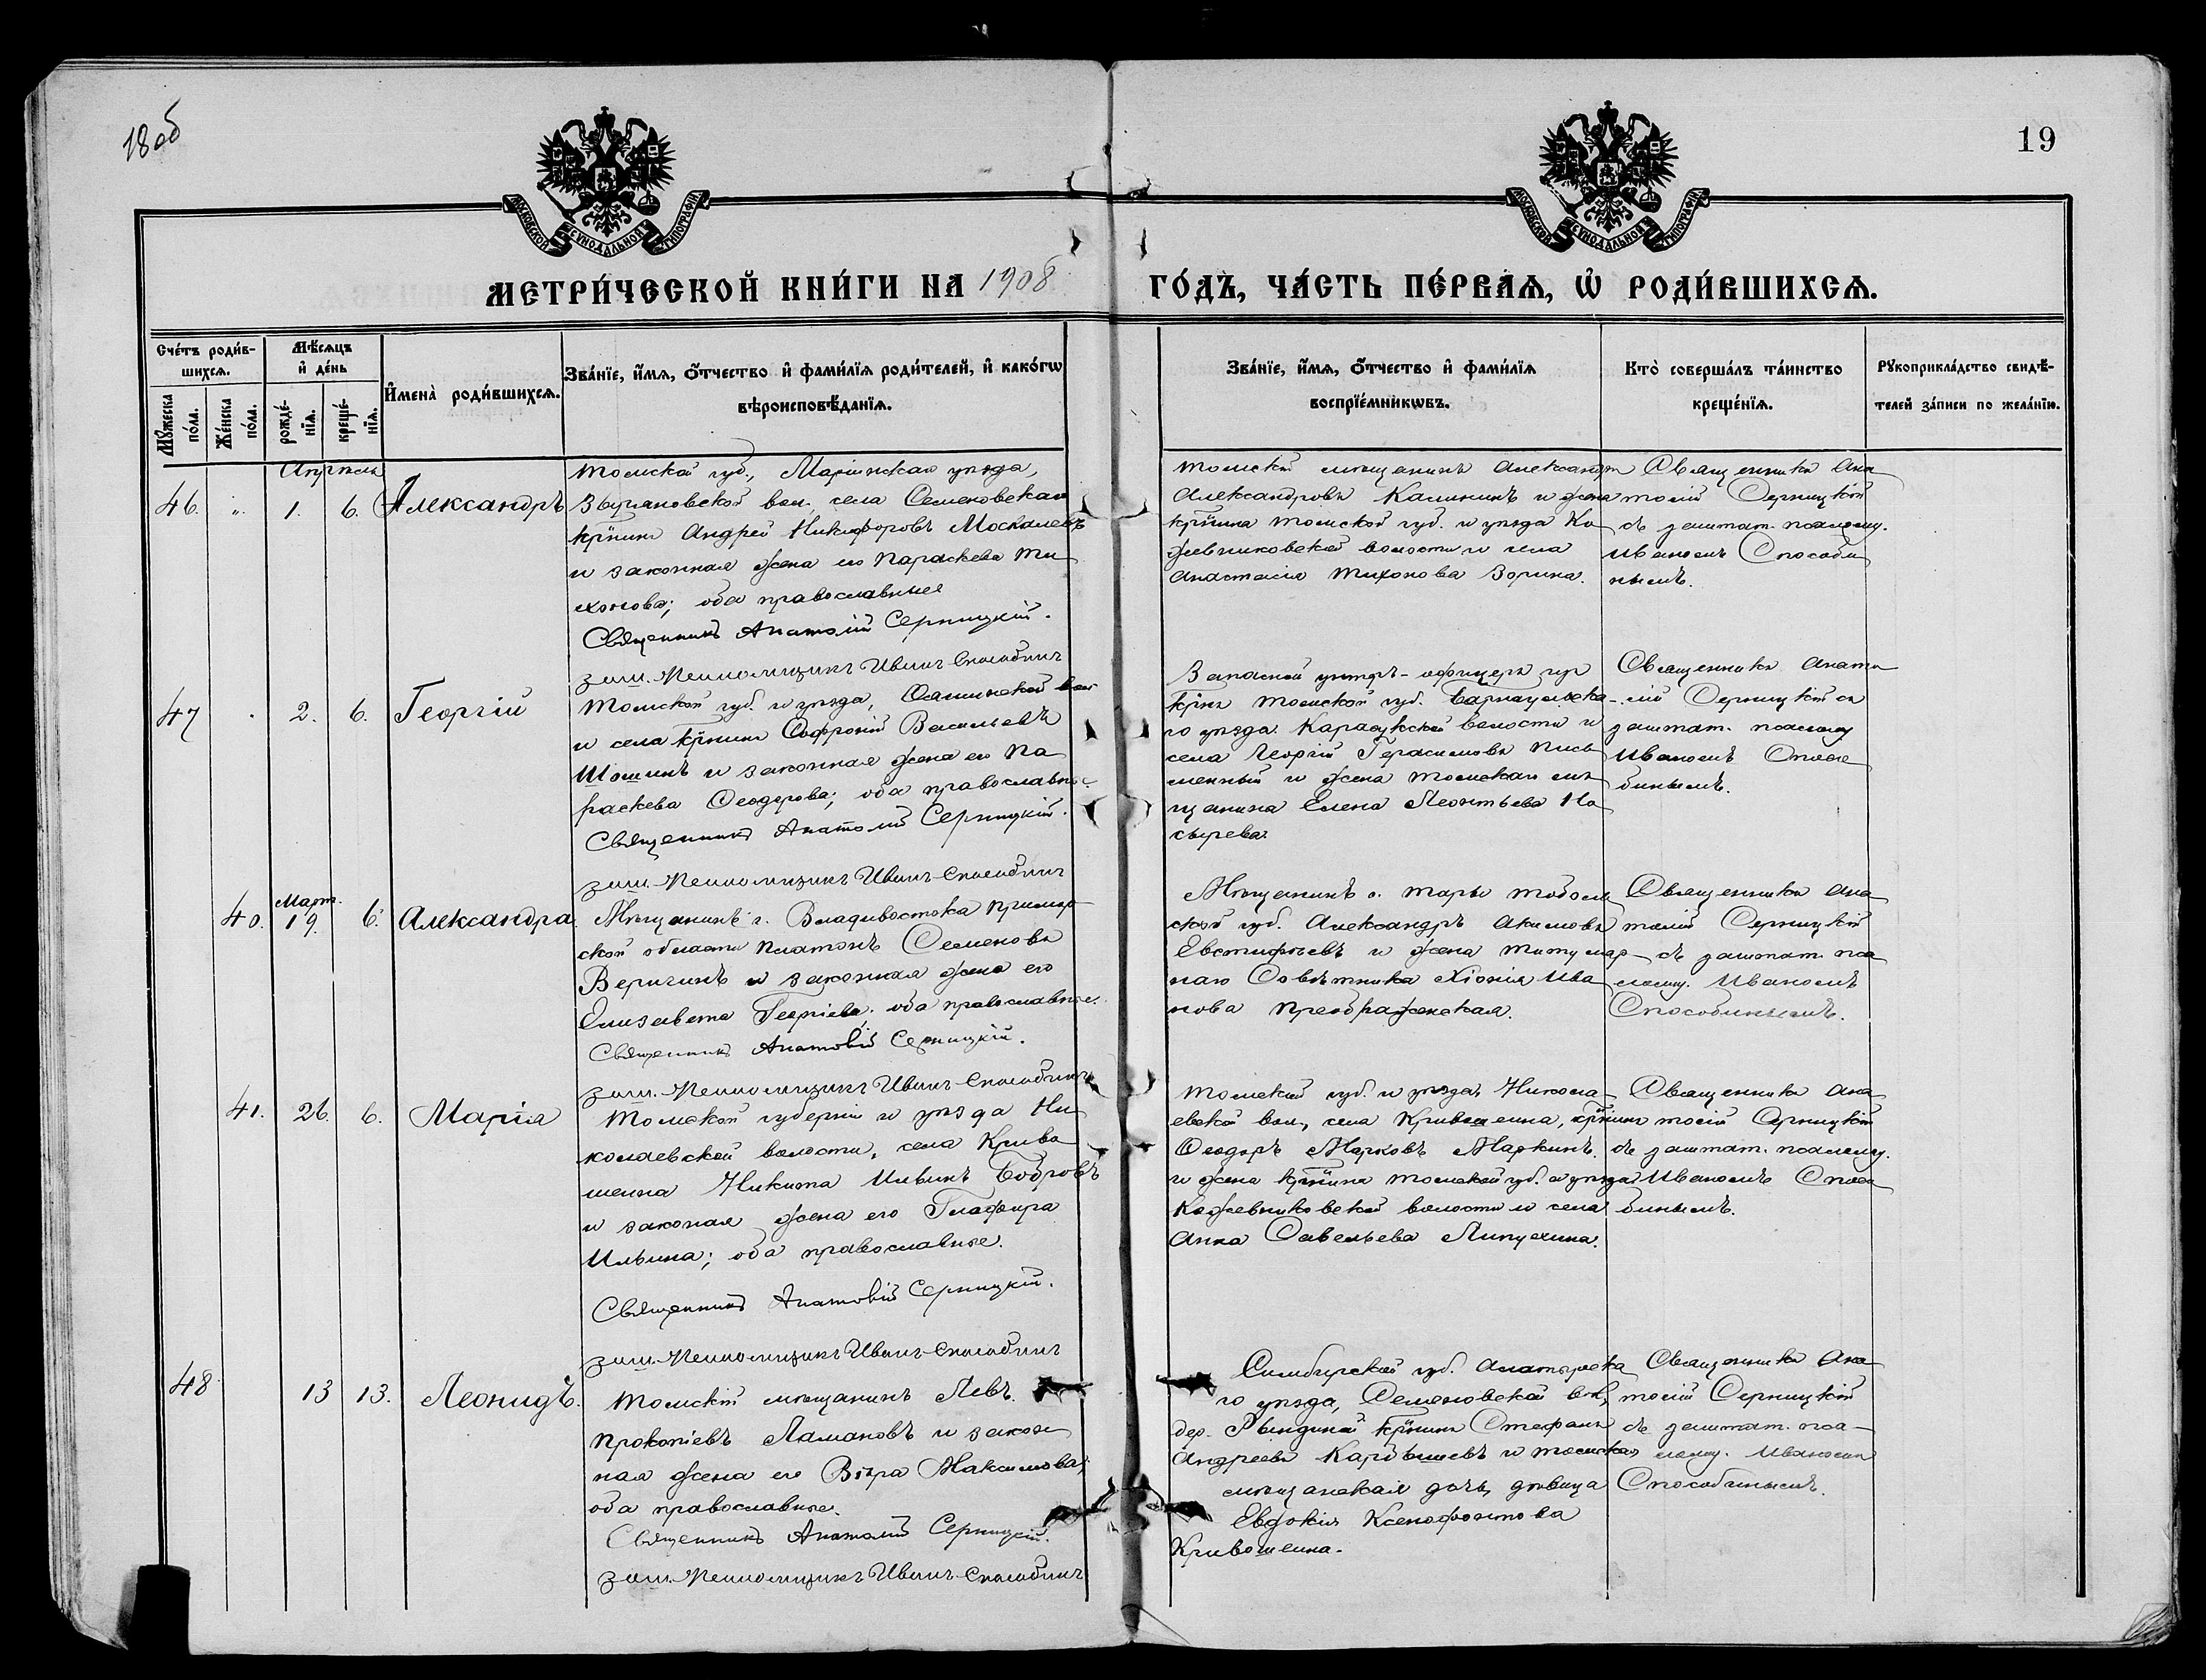 18 об
19
МОСКОВСКОЙ СУНОДАЛЬНОЙ ТИПОГРАФІИ
МОСКОВСКОЙ СУНОДАЛЬНОЙ ТИПОГРАФІИ
МЕТРИ́ЧЕСКОЙ КНИ́ГИ НА 1908 ГО́ДЪ, ЧА́СТЬ ПЕ́РВАѦ, Ѡ҆ РОДИ́ВШИХСѦ.
Сче́тъ роди́в-
шихсѧ.
Мꙋ́жеска по́ла.
Же́нска по́ла.
Мѣ́сѧцъ
и҆ де́нь
рожде́-
нїѧ.
креще́-
нїѧ.
И҆мена̀ роди́вшихсѧ.
Зва́нїе, и҆́мѧ, ѻ҆́тчество и҆ фами́лїѧ роди́телей, и҆ како́гѡ
вѣроисповѣ́данїѧ.
Зва́нїе, и҆́мѧ, ѻ҆́тчество и҆ фами́лїѧ
воспрїе́мникѡвъ.
Кто̀ соверша́лъ та́инство
креще́нїѧ.
Рꙋкоприкла́дство свидѣ́-
телей за́писи по жела́нїю.
Апрѣль
46. „ 1. 6. Александръ
Томской губ., Маріинскаго уѣзда,
вол., села Семеновскаго
кр҃нинъ Андрей Никифоровъ Москалевъ
и законная жена его Параскева Ти
хонова; оба православные
Священникъ Анатолій Серницкій.
зашт. Псаломщикъ Иванъ Способинъ
Томскій мѣщанинъ Александръ
Александровъ Калининъ и жена
кр҃нина Томской губ. и уѣзда Ко
жевниковской волости и села
Анастасія Тихонова Зорина.
Священникъ Ана
толій Серницкій
съ заштат. псаломщ.
Иваномъ Способи
нымъ.
47 2. 6. Георгій
Томской губ. и уѣзда, вол
и села кр҃нинъ Софроній Васильевъ
Шошинъ и законная жена его Па
раскева Ѳеодорова; оба православные.
Священникъ Анатолій Серницкій.
зашт. Псаломщикъ Иванъ Способинъ
Запасной унтеръ-офицеръ изъ
кр҃нъ Томской губ. Барнаульска
го уѣзда Карасукской волости и
села Георгій Герасимовъ Пись
менный и жена Томскаго мѣ
щанина Елена Леонтьева На
сырева.
Священникъ Анато
лій Серницкій съ
заштат. псаломщ
Иваномъ Спосо
бинымъ.
Март.
40. 19. 6. Александра
Мѣщанинъ г. Владивостока Примор
ской области Платонъ Семеновъ
Веригинъ и законная жена его
Елизавета Георгіева; оба православные.
Священникъ Анатолій Серницкій.
зашт. Псаломщикъ Иванъ Способинъ
Мѣщанинъ г. Тары Тоболь
ской губ. Александръ Акимовъ
Евстифѣевъ и жена Титуляр
наго Совѣтника Хіонія Ива
нова Преображенская.
Священникъ Ана
толій Серницкій
съ заштат. пса
ломщ. Иваномъ
Способинымъ.
41. 26. 6. Марія
Томской губерніи и уѣзда Ни
колаевской волости, села Криво
шеина Никита Ильинъ Бобровъ
и законая жена его Глафира
Ильина; оба православные.
Священникъ Анатолій Серницкій.
зашт. Псаломщикъ Иванъ Способинъ
Томской губ. и уѣзда, Никола
евской вол., села Кривошеина, кр҃нинъ
Ѳеодоръ Марковъ Маркинъ
и жена кр҃нина Томской губ. и уѣзда
Кожевниковской волости и села
Анна Савельева Липухина.
Священникъ Ана
толій Серницкій
съ заштат. псаломщ.
Иваномъ Спосо
бинымъ.
48 13 13. Леонидъ.
Томскій мѣщанинъ Левъ
Прокопіевъ Ламановъ и закон
ная жена его Вѣра Максимова;
оба православные.
Священникъ Анатолій Серницкій.
зашт. Псаломщикъ Иванъ Способинъ
Симбирской губ. Алатырска
го уѣзда, Семеновской вол,
дер. кр҃нинъ Стефанъ
Андреевъ Карабышевъ и томская
мѣщанская дочь, дѣвица
Евдокія Ксенофонтова
Кривошеина.
Священникъ Ана
толій Серницкій
съ заштат. пса-
ломщ. Иваномъ
Способинымъ.